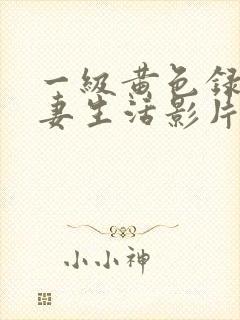 一级黄色録
妻生活影片
小小神